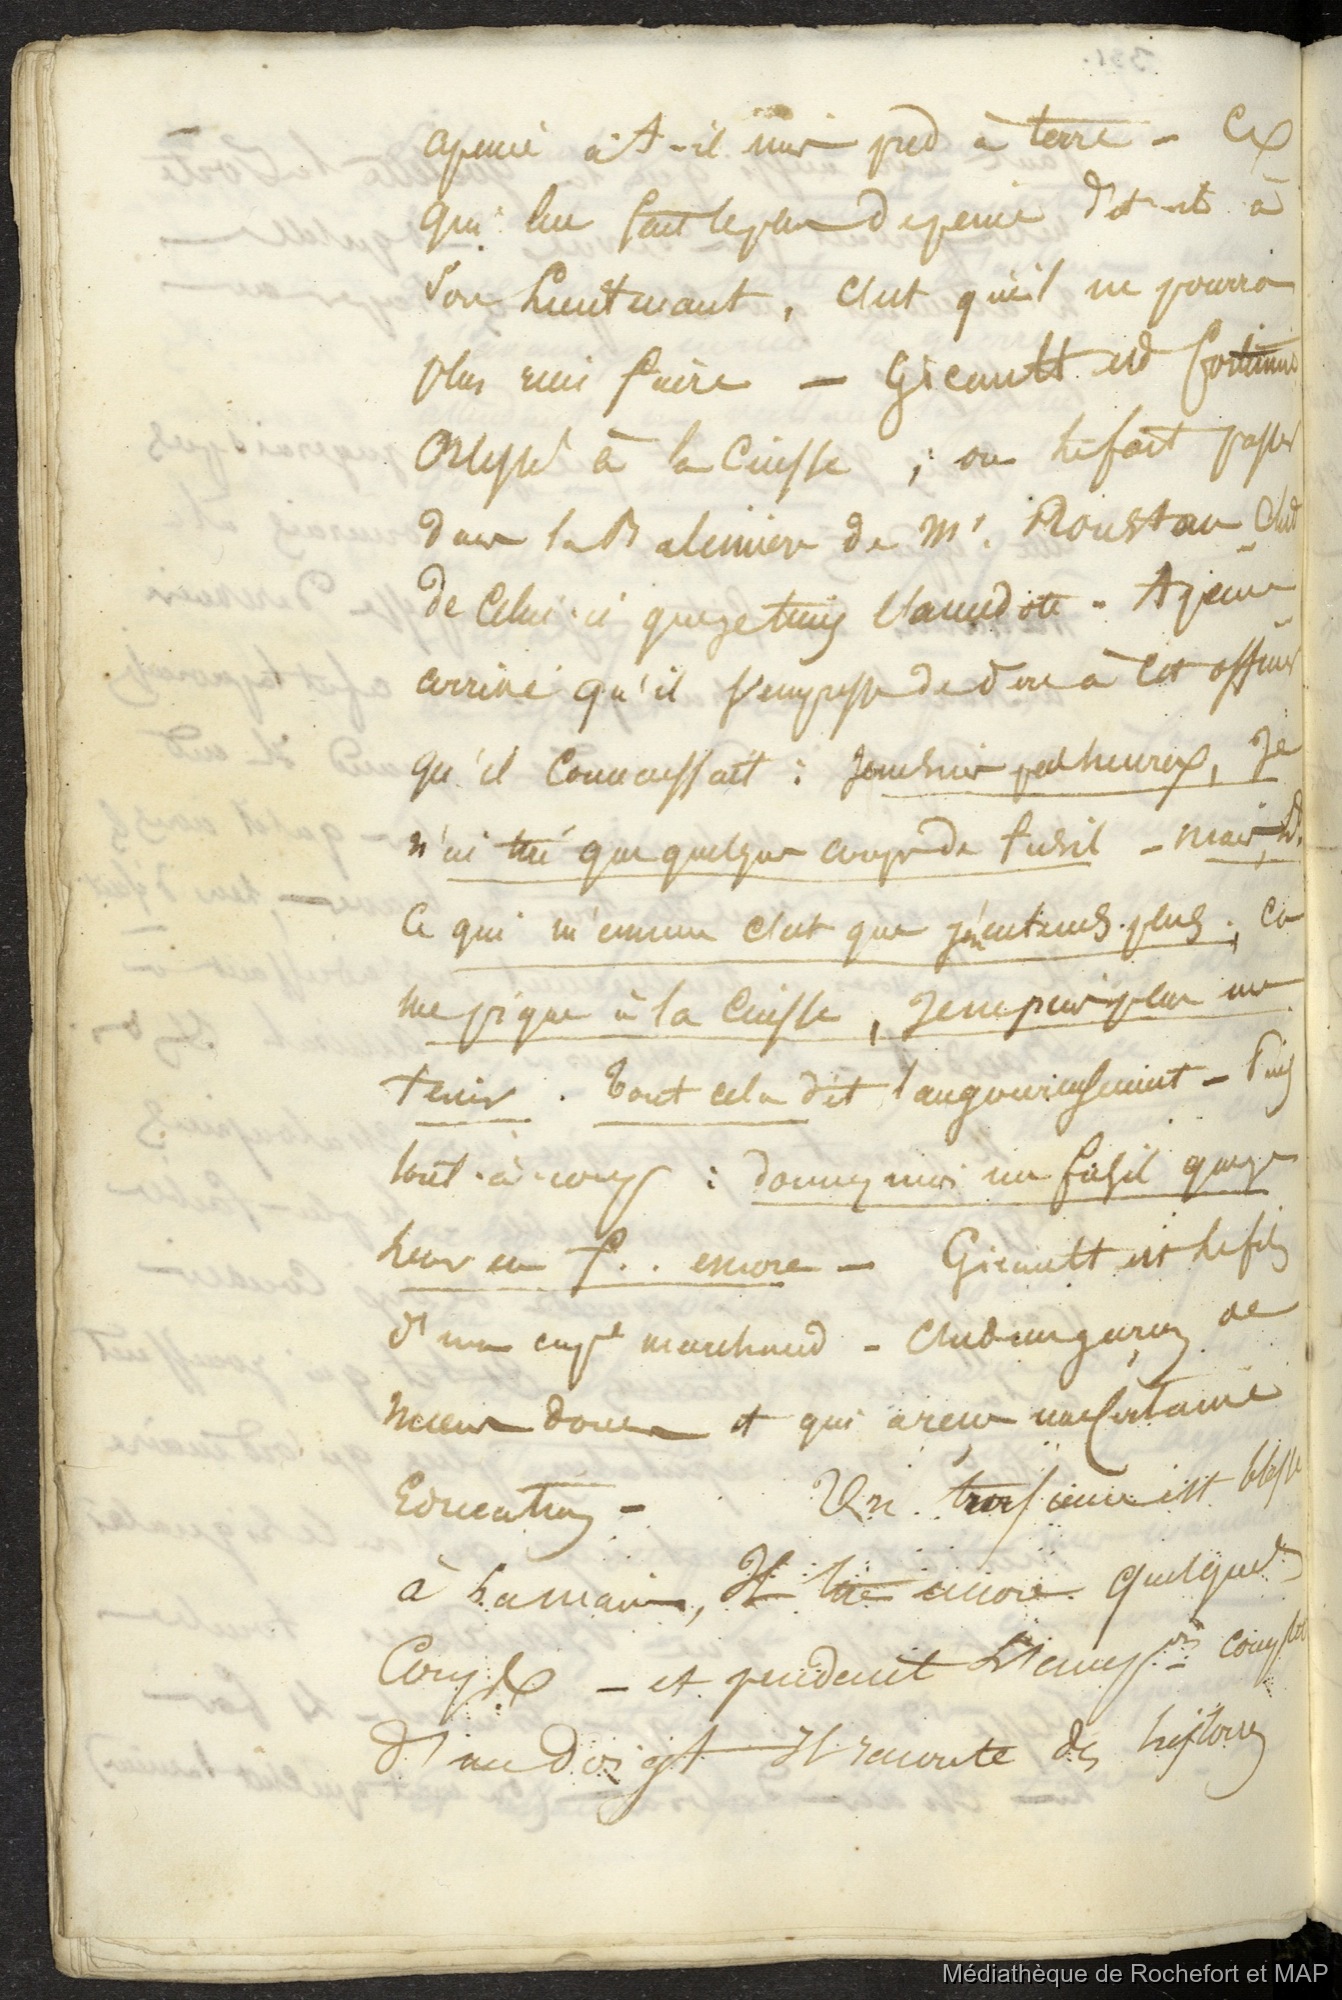 331.
apeine a t-il mis pied à terre - Ce
qui lui fait le plus de peine dit-il à
son Lieutenant, c'est qu'il ne pourra
plus rien faire — Gicault est
blessé à la Cuisse, on le fait passer
dans la Baleinière de Mr. Roustan C'est
de Celui-ci que je tiens l'anecdote - A peine
arrivé qu'il s'empresse de dire à Cet officier
qu'il Connaissait : Je ne suis pas heureux, Je
n'ai tiré que quelques coups de fusil - mais
Ce qui m'ennuie c'est que je n'entends plus, ca
me pique à la Cuisse, Je ne puis plus me
tenir. Tout cela dit langoureusement - Puis
tout-à-coup : donnez moi un fusil que je
leur en f.. encore — Gicault est le fils
d'un cape marchand - C'est un garçon de
moeurs douces et qui a reçu une Certaine
Education - Un troisième est blessé
à la main, Il tire encore quelques
Coups — et pendant l'
d'un doigt Il raconte des histoires
Médiathèque de Rochefort et MAP